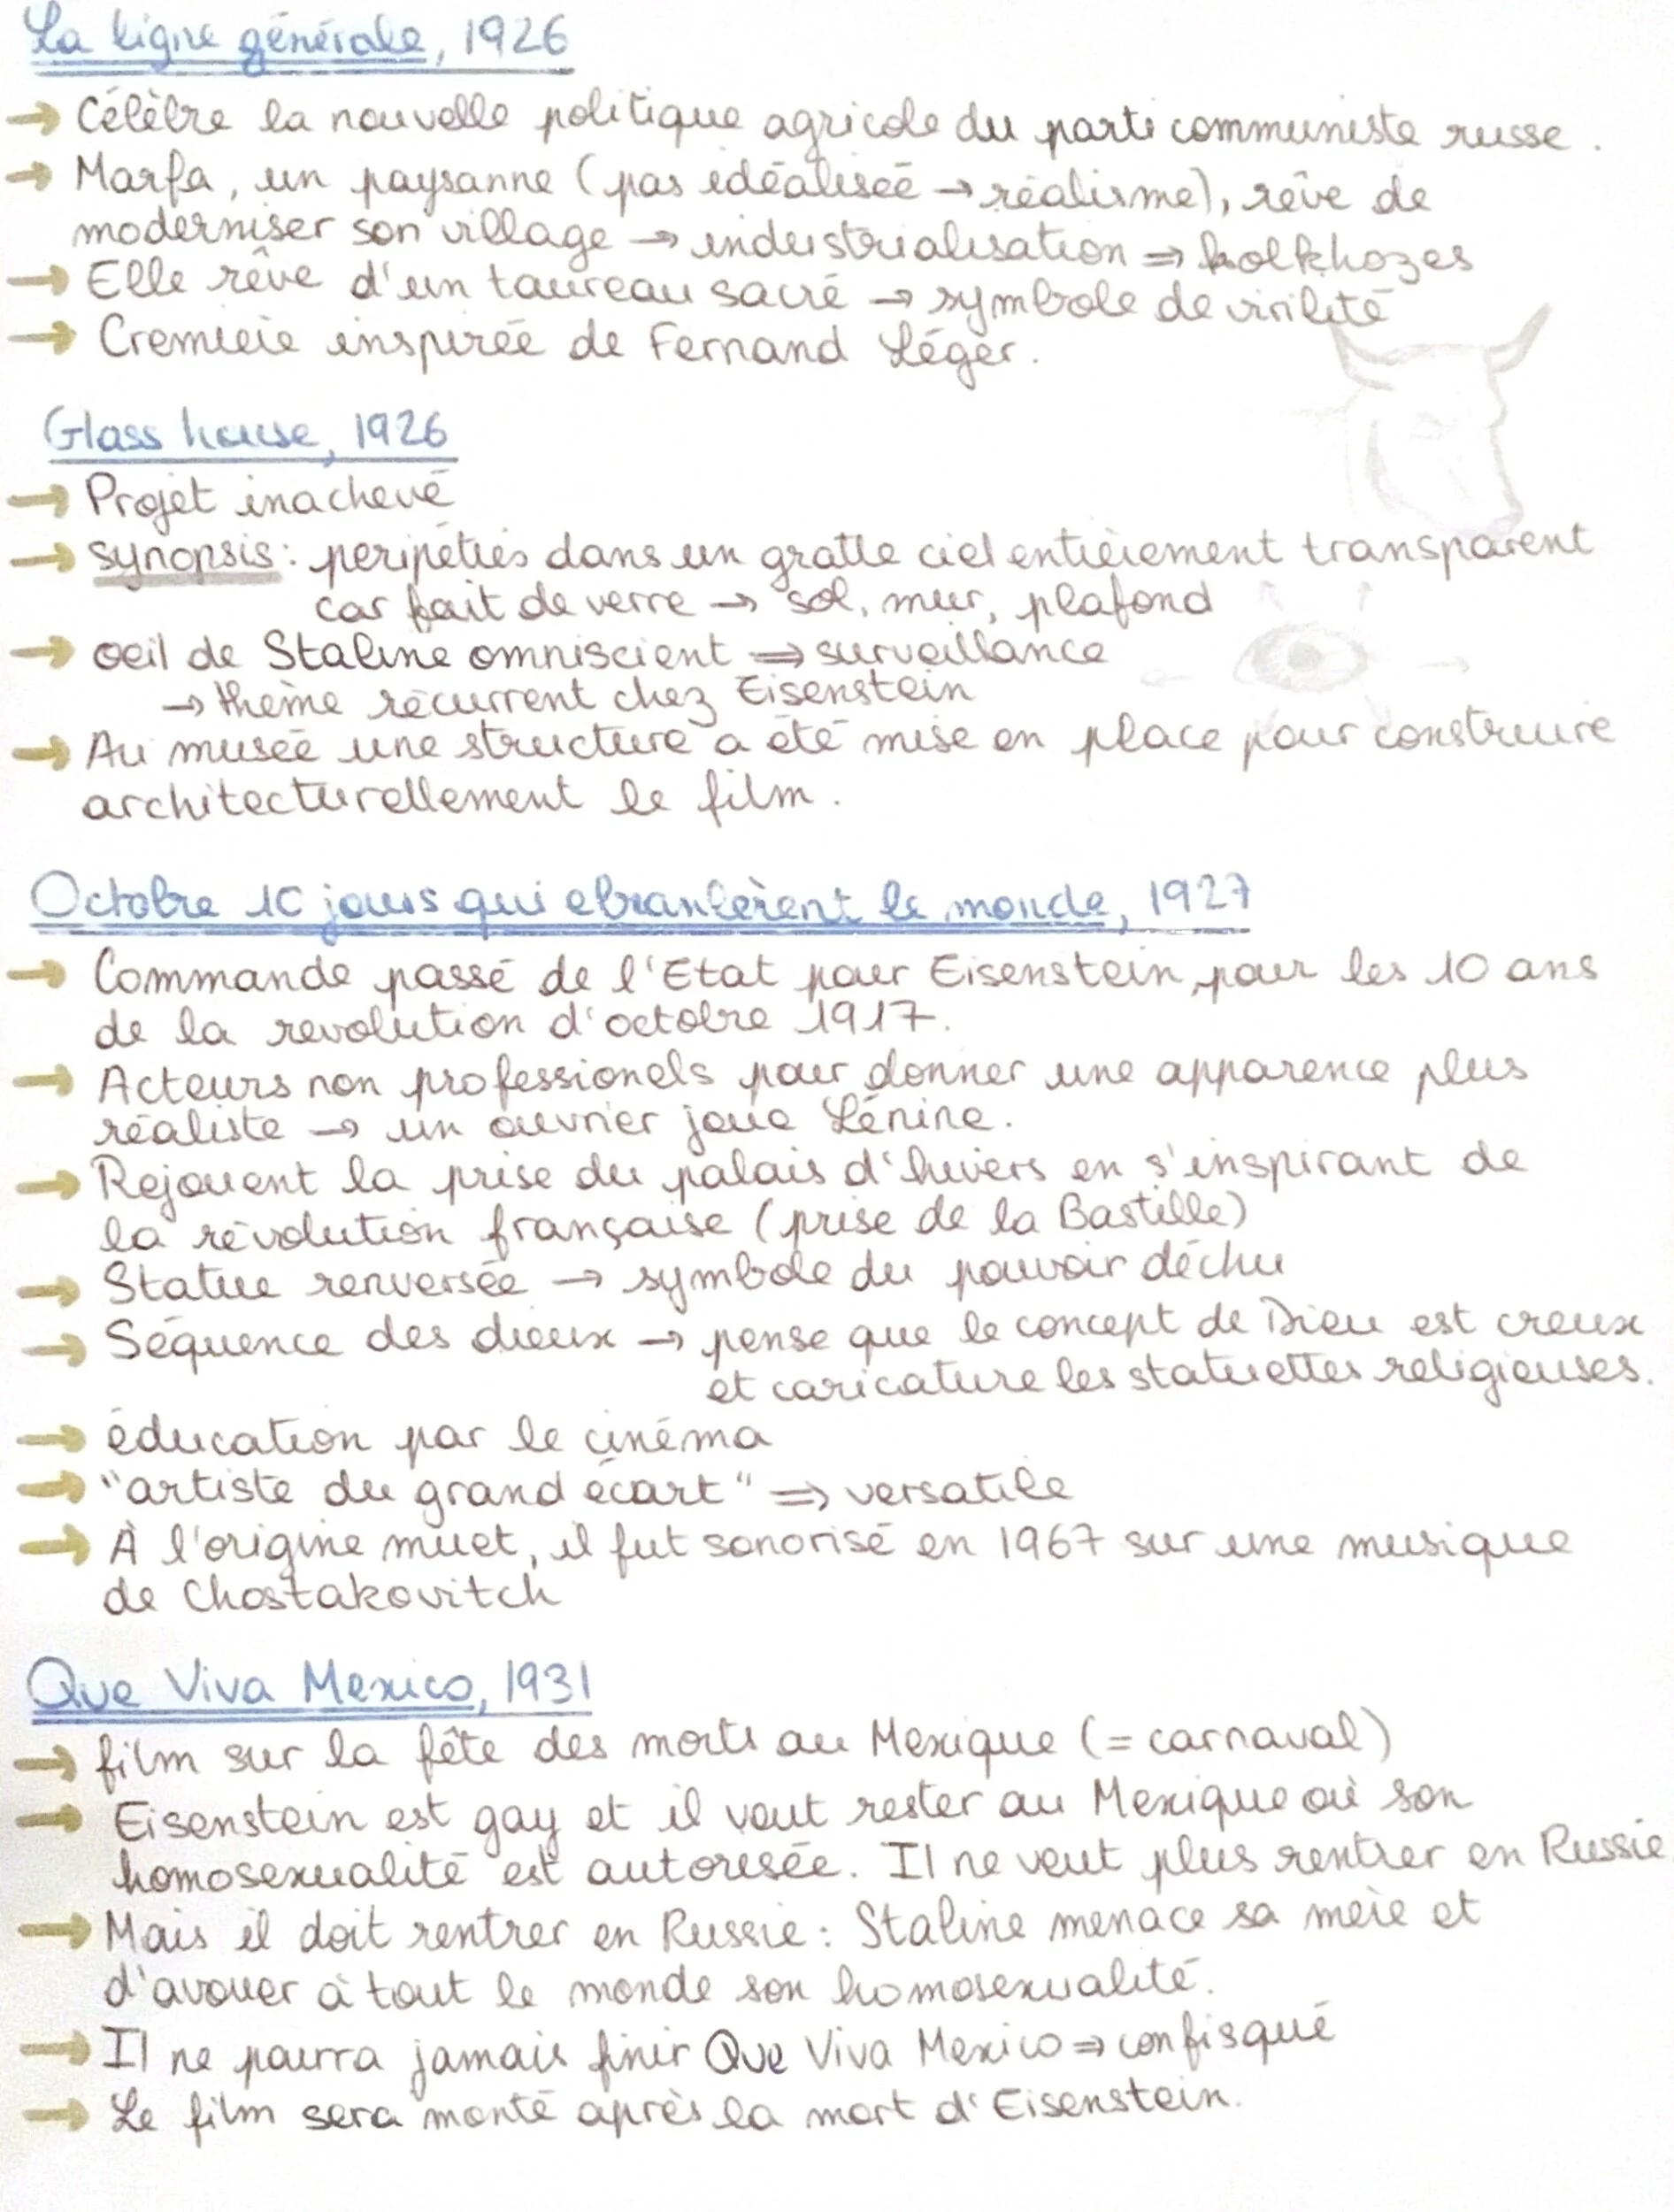 La ligne générale, 1926
→ Célèbre la nouvelle politique agricole du parti communiste russe.
→ Marfa, un paysanne (pas idéalisée → réalisme), rêve de
moderniser son village → industrialisation ⇒ kolkhozes
→ Elle rêve d'un taureau sacré → symbole de virilité
→ Cremerie inspirée de Fernand Léger.
Glass house, 1926
→ Projet inachevé
→ synopsis : péripéties dans un gratte ciel entièrement transparent
car fait de verre → sol, mur, plafond
→ oeil de Staline omniscient ⇒ surveillance
→ thème récurrent chez Eisenstein
→ Au musée une structure a été mise en place pour construire
architecturellement le film.
Octobre 10 jours qui ebranlèrent le monde, 1927
→ Commande passé de l'Etat pour Eisenstein, pour les 10 ans
de la revolution d'octobre 1917.
→ Acteurs non professionels pour donner une apparence plus
réaliste → un ouvrier joue Lénine.
→ Rejouent la prise du palais d'hivers en s'inspirant de
la révolution française (prise de la Bastille)
→ Statue renversée → symbole du pouvoir déchu
→ Séquence des dieux → pense que le concept de Dieu est creux
et caricature les statuettes religieuses.
→ éducation par le cinéma
→ "artiste du grand écart" ⇒ versatile
→ À l'origine muet, il fut sonorisé en 1967 sur une musique
de Chostakovitch
Que Viva Mexico, 1931
→ film sur la fête des morts au Mexique (= carnaval)
→ Eisenstein est gay et il veut rester au Mexique où son
homosexualité est autorisée. Il ne veut plus rentrer en Russie.
→ Mais il doit rentrer en Russie : Staline menace sa mère et
d'avouer à tout le monde son homosexualité.
→ Il ne pourra jamais finir Que Viva Mexico ⇒ confisqué
→ Le film sera monté après la mort d'Eisenstein.